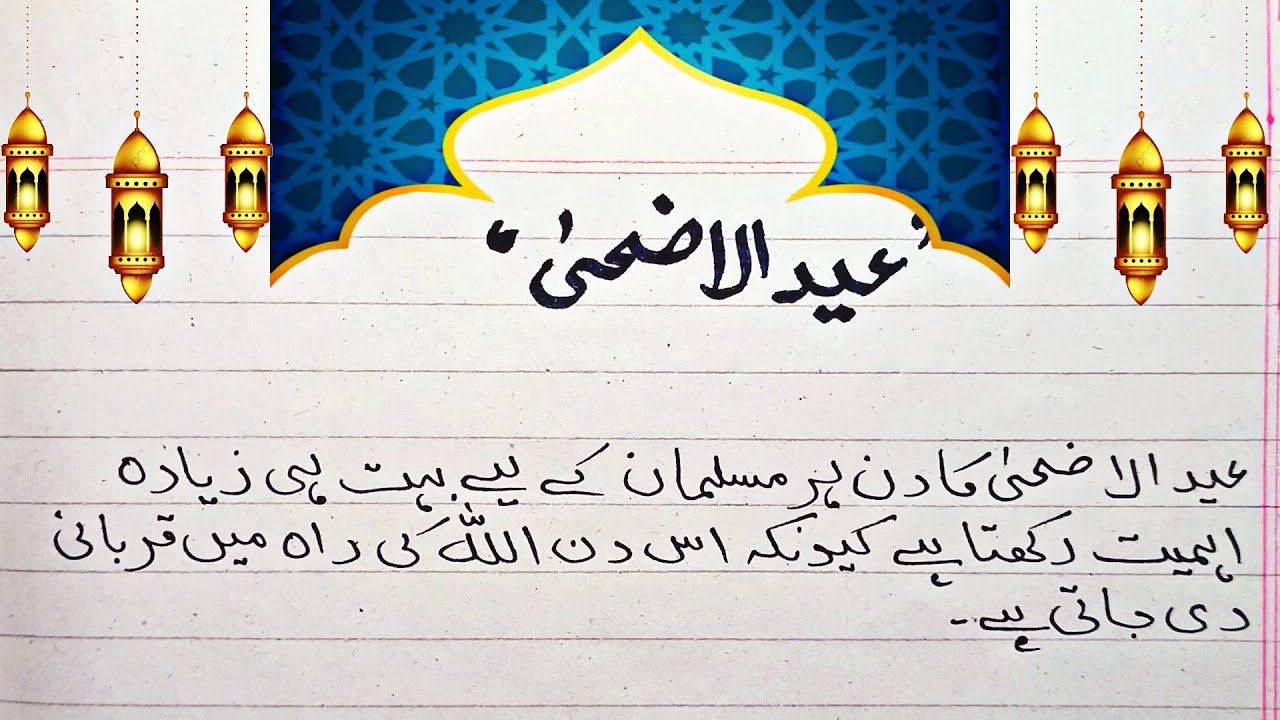 ”عید الاضحیٰ“
عید الاضحیٰ کا دن ہر مسلمان کے لیے بہت ہی زیادہ
اہمیت رکھتا ہے کیونکہ اس دن اللہ کی راہ میں قربانی
دی جاتی ہے۔